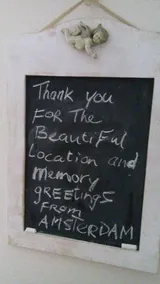 Thank you
FOR The
BeautiFul
Location and
memory
gReetings
FROM
AMSTERDAM